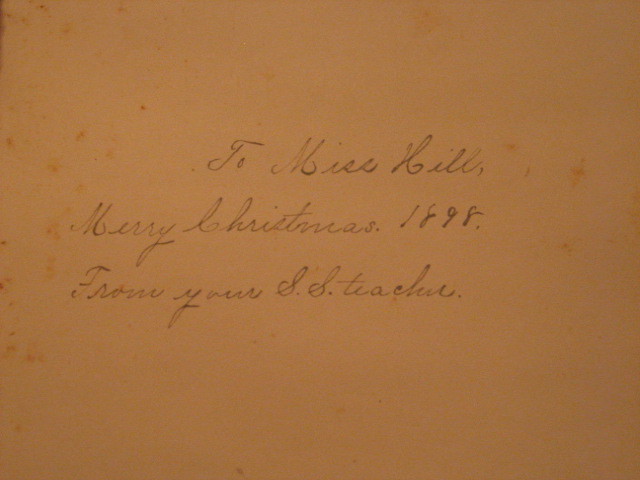 To Miss Hill,
Merry Christmas. 1898.
From your S.S. teacher.